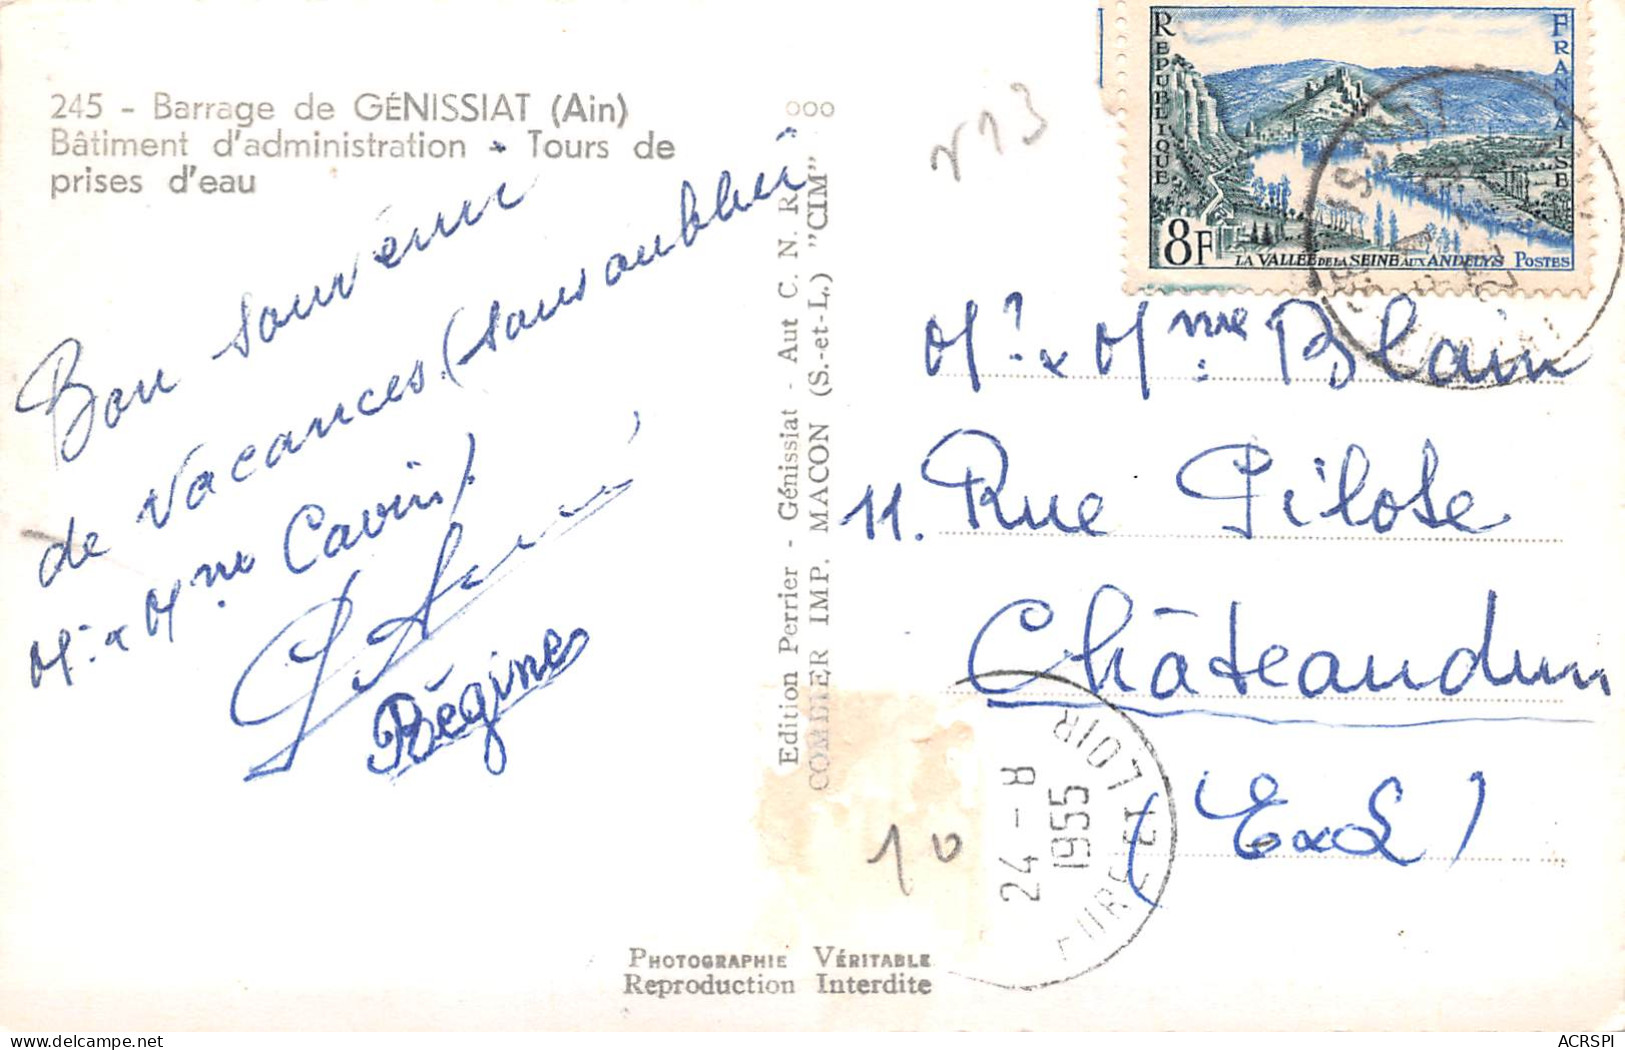 245 - Barrage de GÉNISSIAT (Ain)
Bâtiment d'administration - Tours de
prises d'eau
Bon souvenir
de Vacances (sans oublier
Mr & Mme Cavin)
Régine
Edition Perrier - Génissiat - Aut C. N. R.
COMBIER IMP. MACON (S.-et-L.) "CIM"
PHOTOGRAPHIE VÉRITABLE
Reproduction Interdite
ooo
n13
10
RÉPUBLIQUE
FRANÇAISE
8F
LA VALLÉE DE LA SEINE AUX ANDELYS POSTES
Mr & Mme Blain
11. Rue Pilote
Châteaudun
(E&L)
24 - 8
1955
EURE ET LOIR
ACRSPI